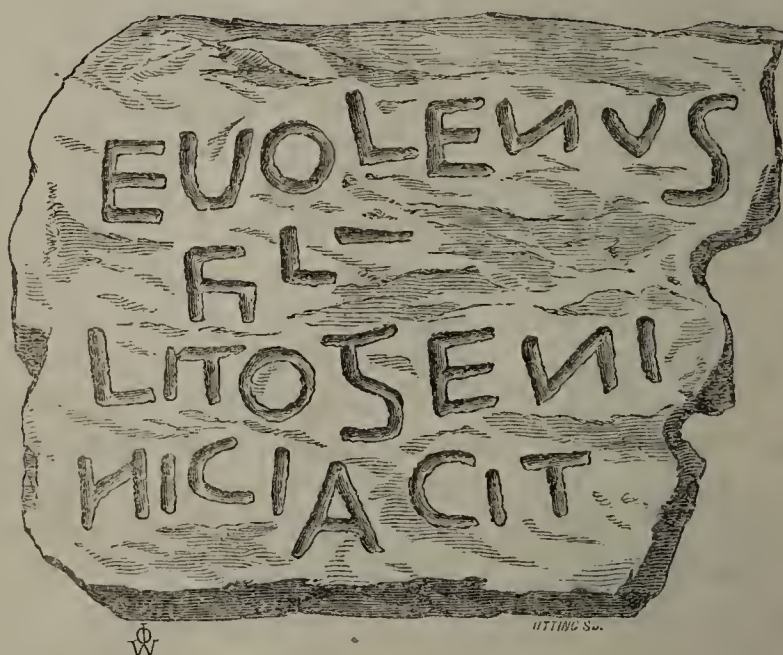 EUOLENVS
FIL-
LITOGENI
HIC IACIT
UTTING Sc.